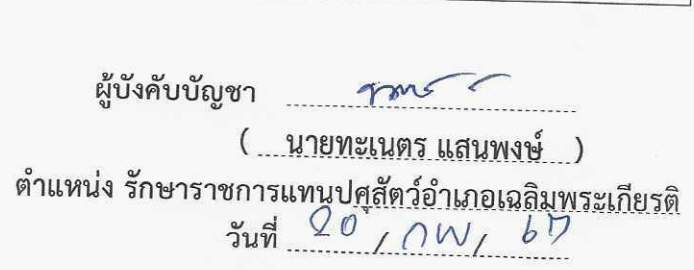 ผู้บังคับบัญชา
( นายทะเนตร แสนพงษ์ )
ตำแหน่ง รักษาราชการแทนปศุสัตว์อำเภอเฉลิมพระเกียรติ
วันที่ 20 / กพ / 67